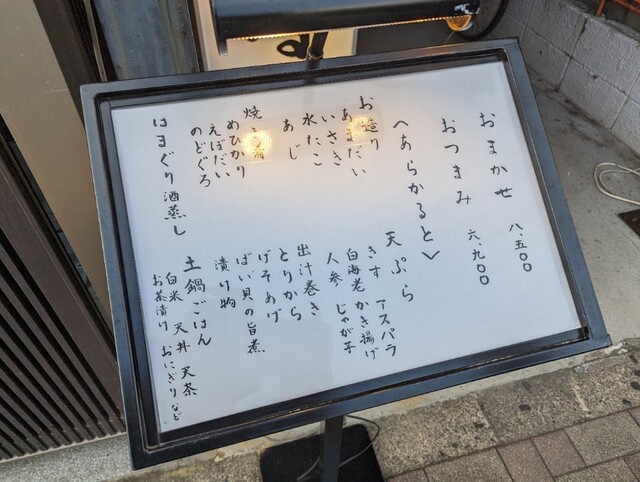 おまかせ 八、五〇〇
おつまみ 六、九〇〇
〈あらかると〉
お造り
あまだい
いさき
水たこ
あじ
焼き魚
めひかり
えぼだい
のどぐろ
はまぐり酒蒸し
天ぷら
きす アスパラ
白海老 かき揚げ
人参 じゃが芋
出汁巻き
とりから
げそあげ
ばい貝の旨煮
漬け物
土鍋ごはん
白米 天丼 天茶
お茶漬け おにぎり など